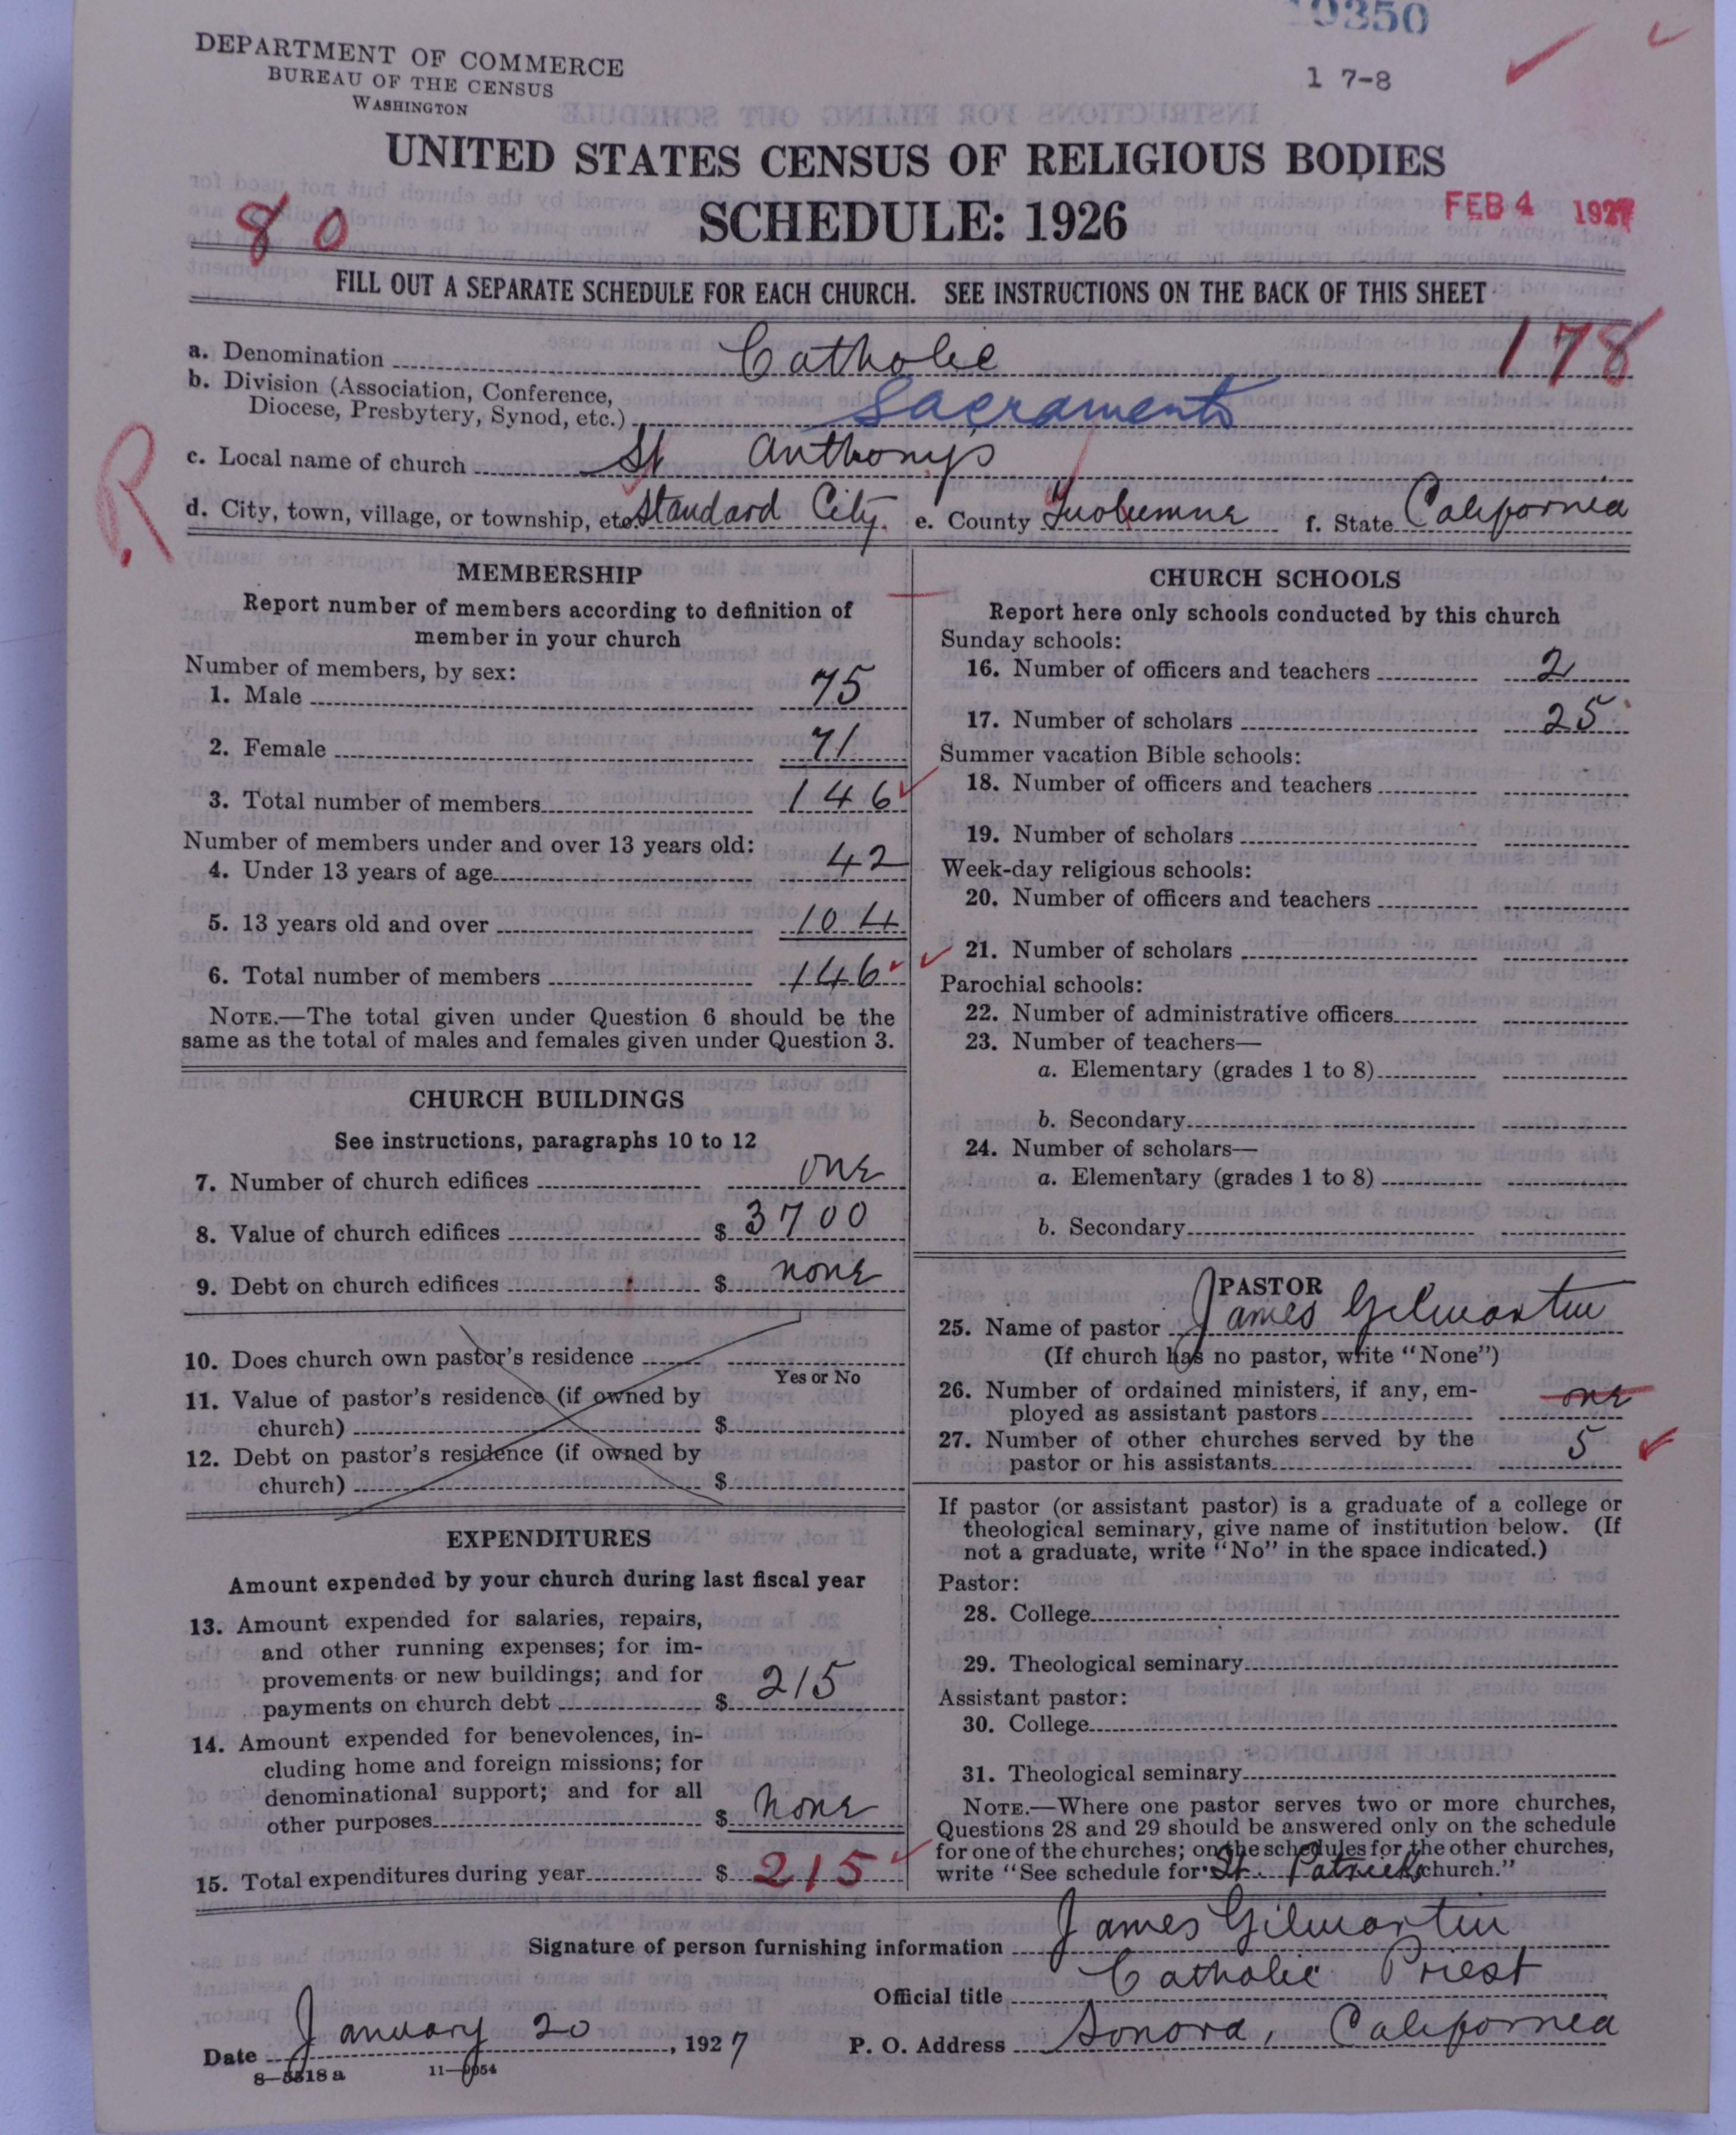 10350
DEPARTMENT OF COMMERCE
BUREAU OF THE CENSUS
WASHINGTON
1 7-8
UNITED STATES CENSUS OF RELIGIOUS BODIES
SCHEDULE: 1926
FEB 4 1927
80
FILL OUT A SEPARATE SCHEDULE FOR EACH CHURCH. SEE INSTRUCTIONS ON THE BACK OF THIS SHEET
178
a. Denomination Catholic
b. Division (Association, Conference,
Diocese, Presbytery, Synod, etc.) Sacramento
c. Local name of church St Anthonys
R
d. City, town, village, or township, etc. Standard City. e. County Tuolumne f. State California
MEMBERSHIP
Report number of members according to definition of
member in your church
Number of members, by sex:
1. Male 75
2. Female 71
3. Total number of members 146
Number of members under and over 13 years old:
4. Under 13 years of age 42
5. 13 years old and over 104
6. Total number of members 146
NOTE.—The total given under Question 6 should be the
same as the total of males and females given under Question 3.
CHURCH BUILDINGS
See instructions, paragraphs 10 to 12
7. Number of church edifices one
8. Value of church edifices $ 3700
9. Debt on church edifices $ none
10. Does church own pastor's residence
Yes or No
11. Value of pastor's residence (if owned by
church) $
12. Debt on pastor's residence (if owned by
church) $
EXPENDITURES
Amount expended by your church during last fiscal year
13. Amount expended for salaries, repairs,
and other running expenses; for im-
provements or new buildings; and for
payments on church debt $ 215
14. Amount expended for benevolences, in-
cluding home and foreign missions; for
denominational support; and for all
other purposes $ none
15. Total expenditures during year $ 215
CHURCH SCHOOLS
Report here only schools conducted by this church
Sunday schools:
16. Number of officers and teachers 2
17. Number of scholars 25
Summer vacation Bible schools:
18. Number of officers and teachers
19. Number of scholars
Week-day religious schools:
20. Number of officers and teachers
21. Number of scholars
Parochial schools:
22. Number of administrative officers
23. Number of teachers—
a. Elementary (grades 1 to 8)
b. Secondary
24. Number of scholars—
a. Elementary (grades 1 to 8)
b. Secondary
PASTOR
25. Name of pastor James Gilmartin
(If church has no pastor, write "None")
26. Number of ordained ministers, if any, em-
ployed as assistant pastors one
27. Number of other churches served by the
pastor or his assistants 5
If pastor (or assistant pastor) is a graduate of a college or
theological seminary, give name of institution below. (If
not a graduate, write "No" in the space indicated.)
Pastor:
28. College
29. Theological seminary
Assistant pastor:
30. College
31. Theological seminary
NOTE.—Where one pastor serves two or more churches,
Questions 28 and 29 should be answered only on the schedule
for one of the churches; on the schedules for the other churches,
write "See schedule for St. Patricks church."
Signature of person furnishing information James Gilmartin
Official title Catholic Priest
Date January 20, 1927 P. O. Address Sonora, California
8—5518a 11—9054